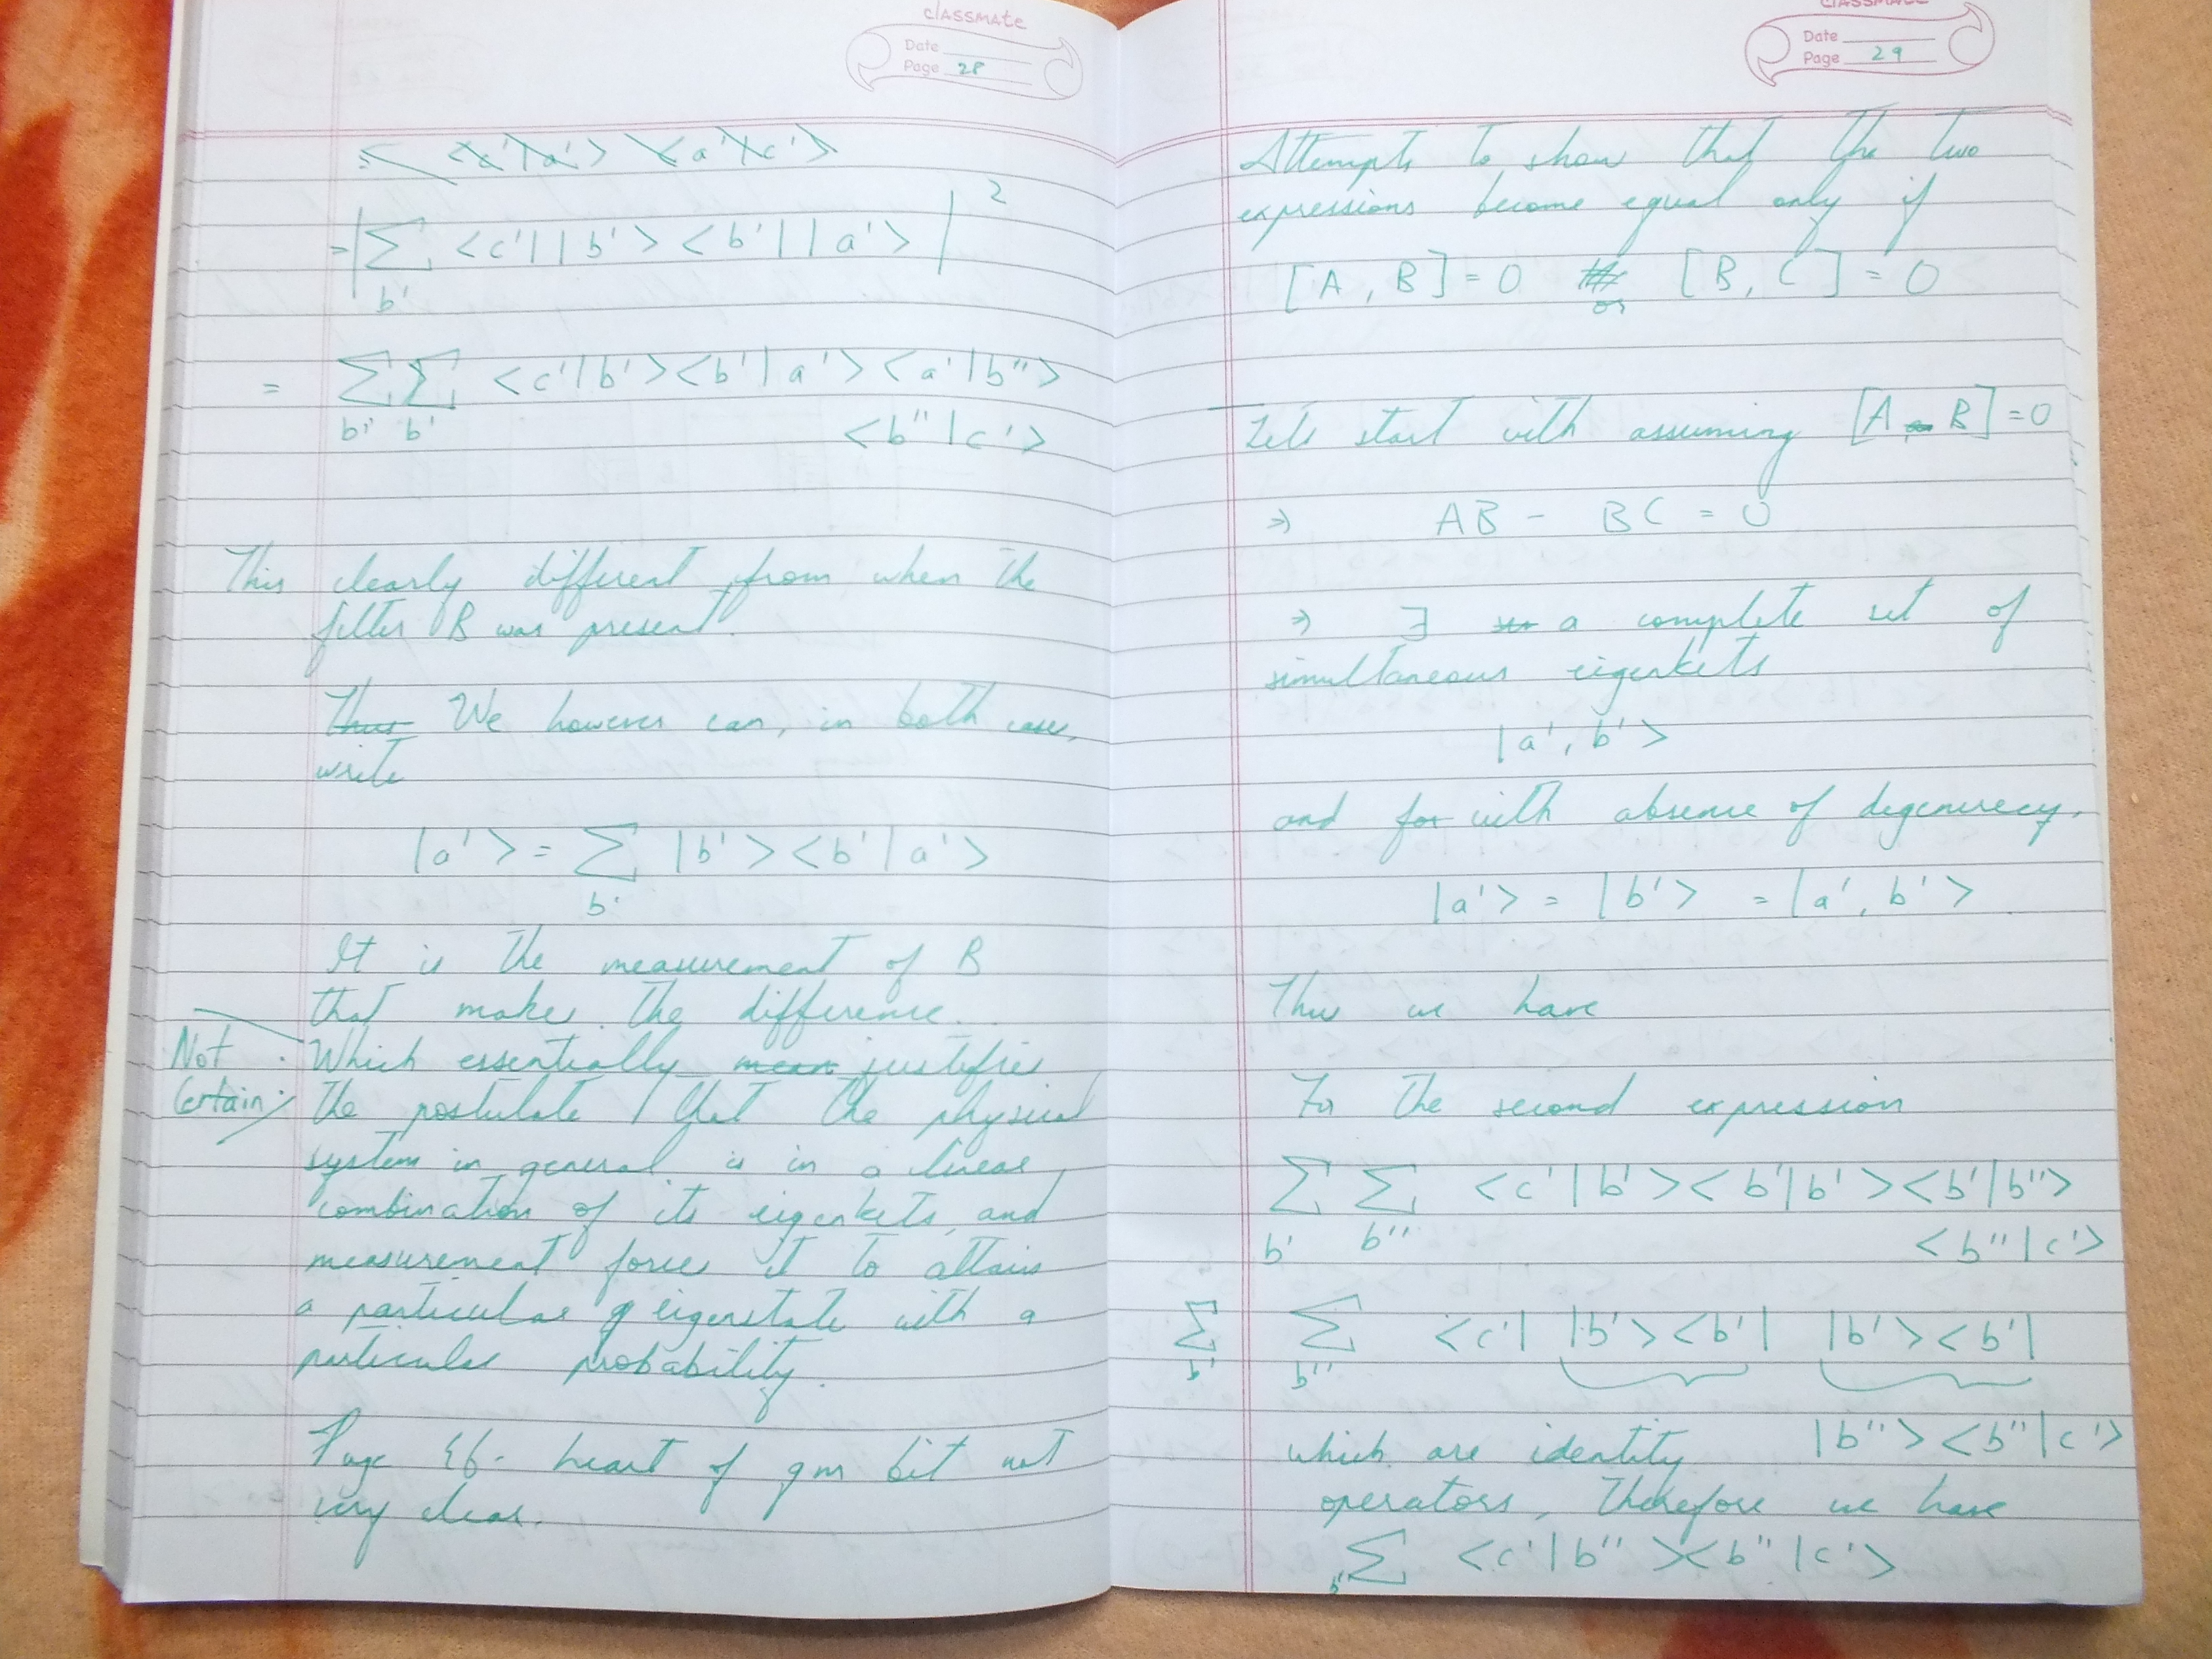 classmate
Date
Page 28
= <c'|a'> <a'|c'>
= | ∑ <c'| |b'> <b'| |a'> |²
b'
= ∑ ∑ <c'|b'> <b'|a'> <a'|b''>
b'' b' <b''|c'>
This clearly different from when the
filter B was present.
Thus We however can, in both cases,
write
|a'> = ∑ |b'> <b'|a'>
b'
It is the measurement of B
that makes the difference.
Not Which essentially mean justifies
Certain: the postulate that the physical
system in general is in a linear
combination of its eigenkets, and
measurement forces it to attain
a particular eigenstate with a
particular probability.
Page heart of qm bit not
very clear.
classmate
Date
Page 29
Attempts to show that the two
expressions become equal only if
[A, B] = 0 or [B, C] = 0
Lets start with assuming [A, B] = 0
⇒ AB - BC = 0
⇒ ∃ a complete set of
simultaneous eigenkets
|a', b'>
and for with absence of degeneracy,
|a'> = |b'> = |a', b'>
Thus we have
For the second expression
∑ ∑ <c'|b'> <b'|b'> <b'|b''>
b' b'' <b''|c'>
∑ ∑ <c'| |b'> <b'| |b'> <b'|
b' b''
which are identity |b''> <b''|c'>
operators, Therefore we have
∑ <c'|b''> <b''|c'>
b''